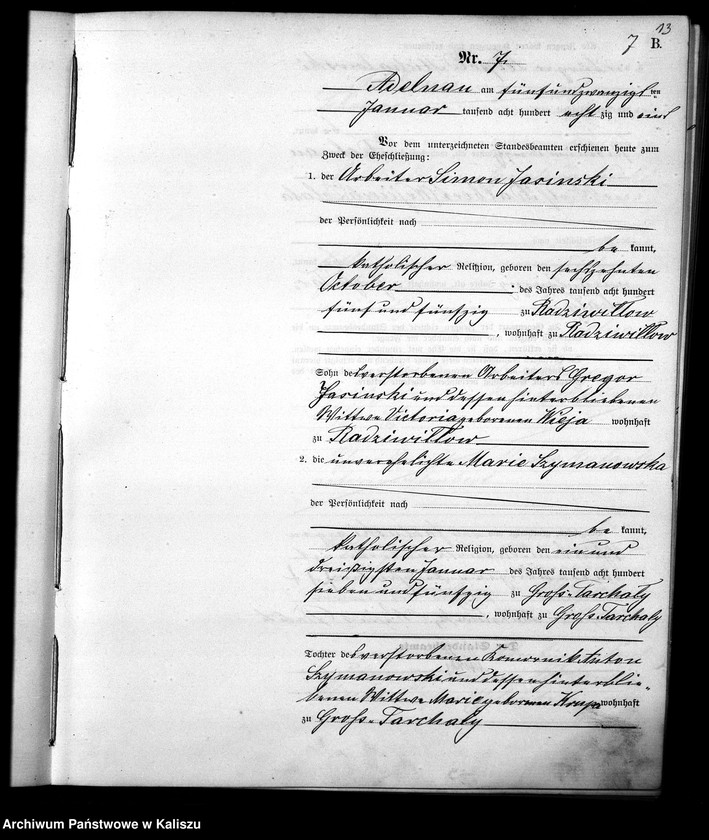 13
7 B.
Nr. 7.
Adelnau am fünfundzwanzigsten
Januar tausend acht hundert achtzig und eins
Vor dem unterzeichneten Standesbeamten erschienen heute zum
Zweck der Eheschließung:
1. der Arbeiter Simon Jasinski
der Persönlichkeit nach
bekannt,
katholischer Religion, geboren den sechszehnten
October des Jahres tausend acht hundert
fünf und fünfzig zu Radziwillow
, wohnhaft zu Radziwillow
Sohn des verstorbenen Arbeiters Gregor
Jasinski und dessen hinterbliebenen
Wittwe Victoria geborenen Kieja wohnhaft
zu Radziwillow
2. die unverehelichte Marie Szymanowska
der Persönlichkeit nach
bekannt,
katholischer Religion, geboren den ein und
dreißigsten Januar des Jahres tausend acht hundert
sieben und fünfzig zu Groß-Tarchaly
, wohnhaft zu Groß-Tarchaly
Tochter des verstorbenen Komornik Anton
Szymanowski und dessen hinterblie-
benen Wittwe Marie geborenen Krupa wohnhaft
zu Groß-Tarchaly
Archiwum Państwowe w Kaliszu